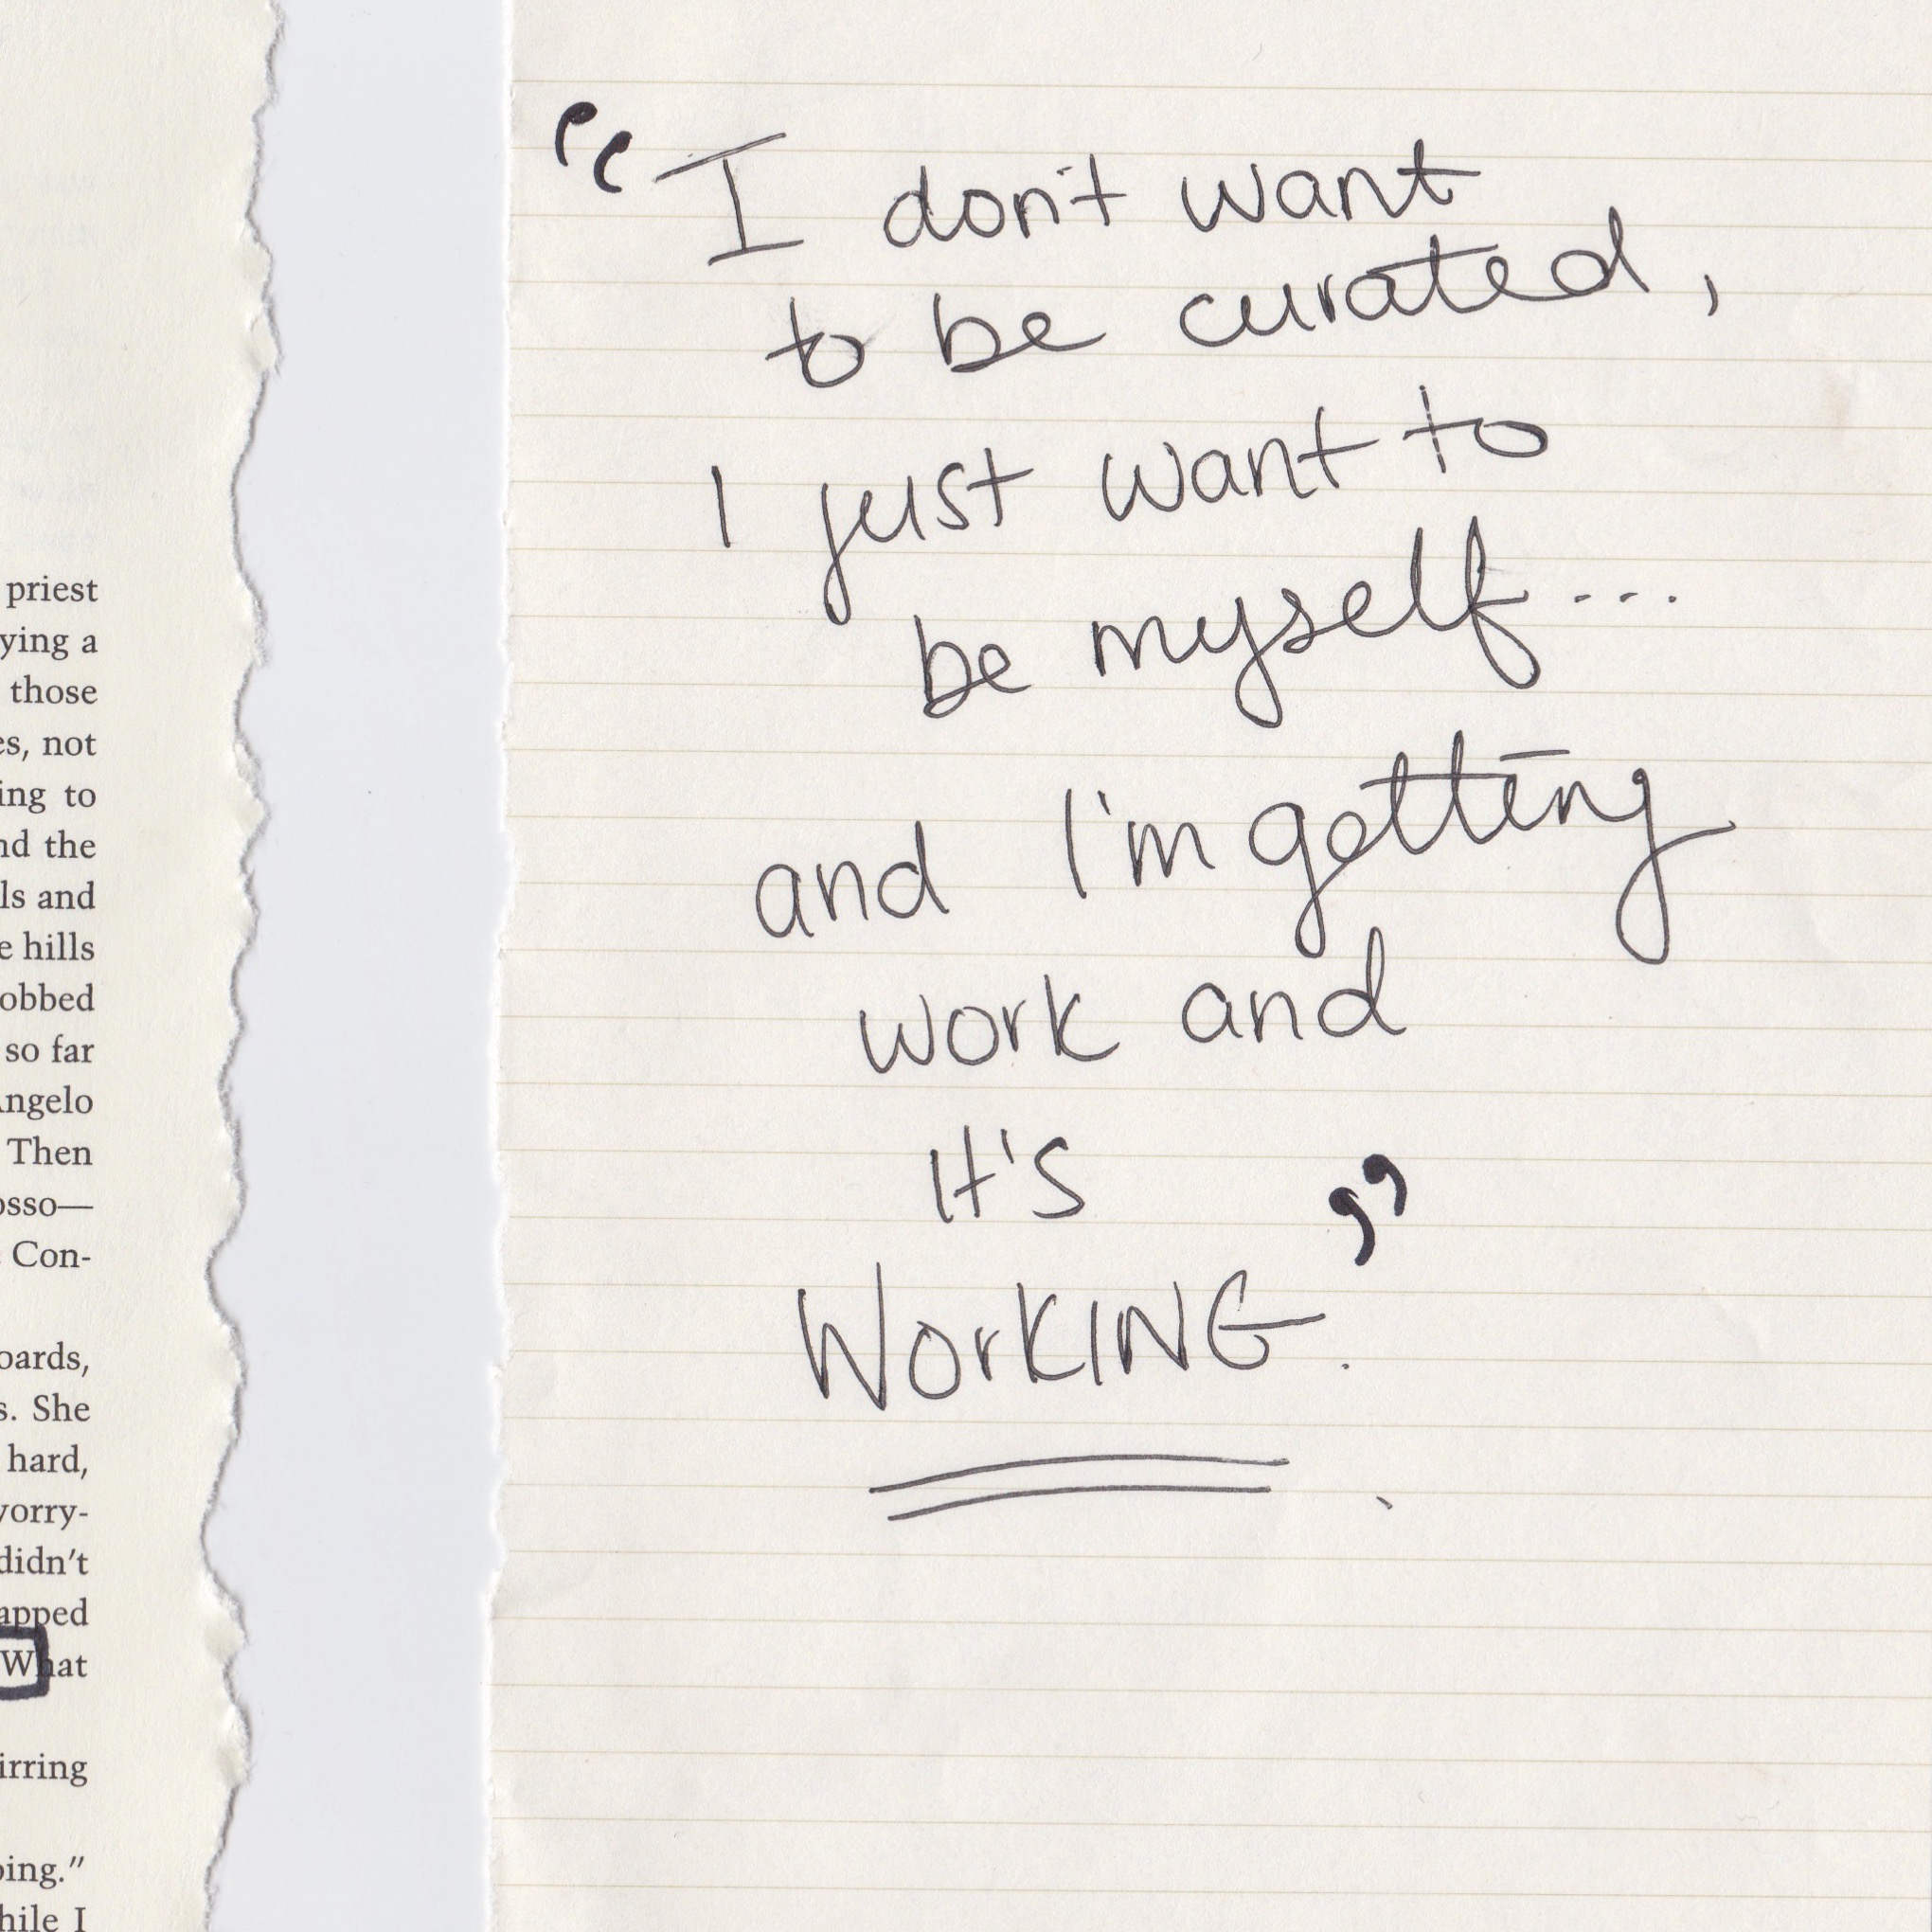 priest
ying a
those
es, not
ing to
nd the
ls and
e hills
obbed
so far
Angelo
Then
osso—
Con-
oards,
s. She
hard,
vorry-
didn't
apped
What
irring
ping."
hile I
“I don't want
to be curated,
I just want to
be myself....
and I'm getting
work and
It's
WorKING.”